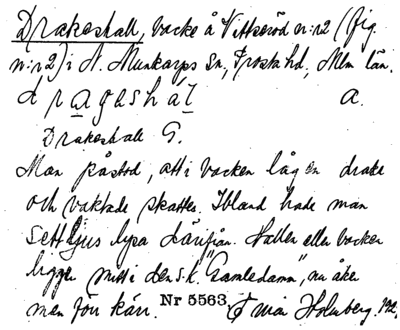 Drakeshall, backe å Vittseröd n:r2 (fig.
n:r2) i N. Munkarps sn, Frosta hd, Mlm län.
dragashál a.
Drakeshall G.
Man påstod, att i backen låg en drake
och vaktade skatter. Ibland hade man
sett ljus lysa därifrån. Hallen eller backen
ligger mitt i den s.k. "Gamledamm", nu åker
men förr kärr. Nr 5563 Holmberg. 192